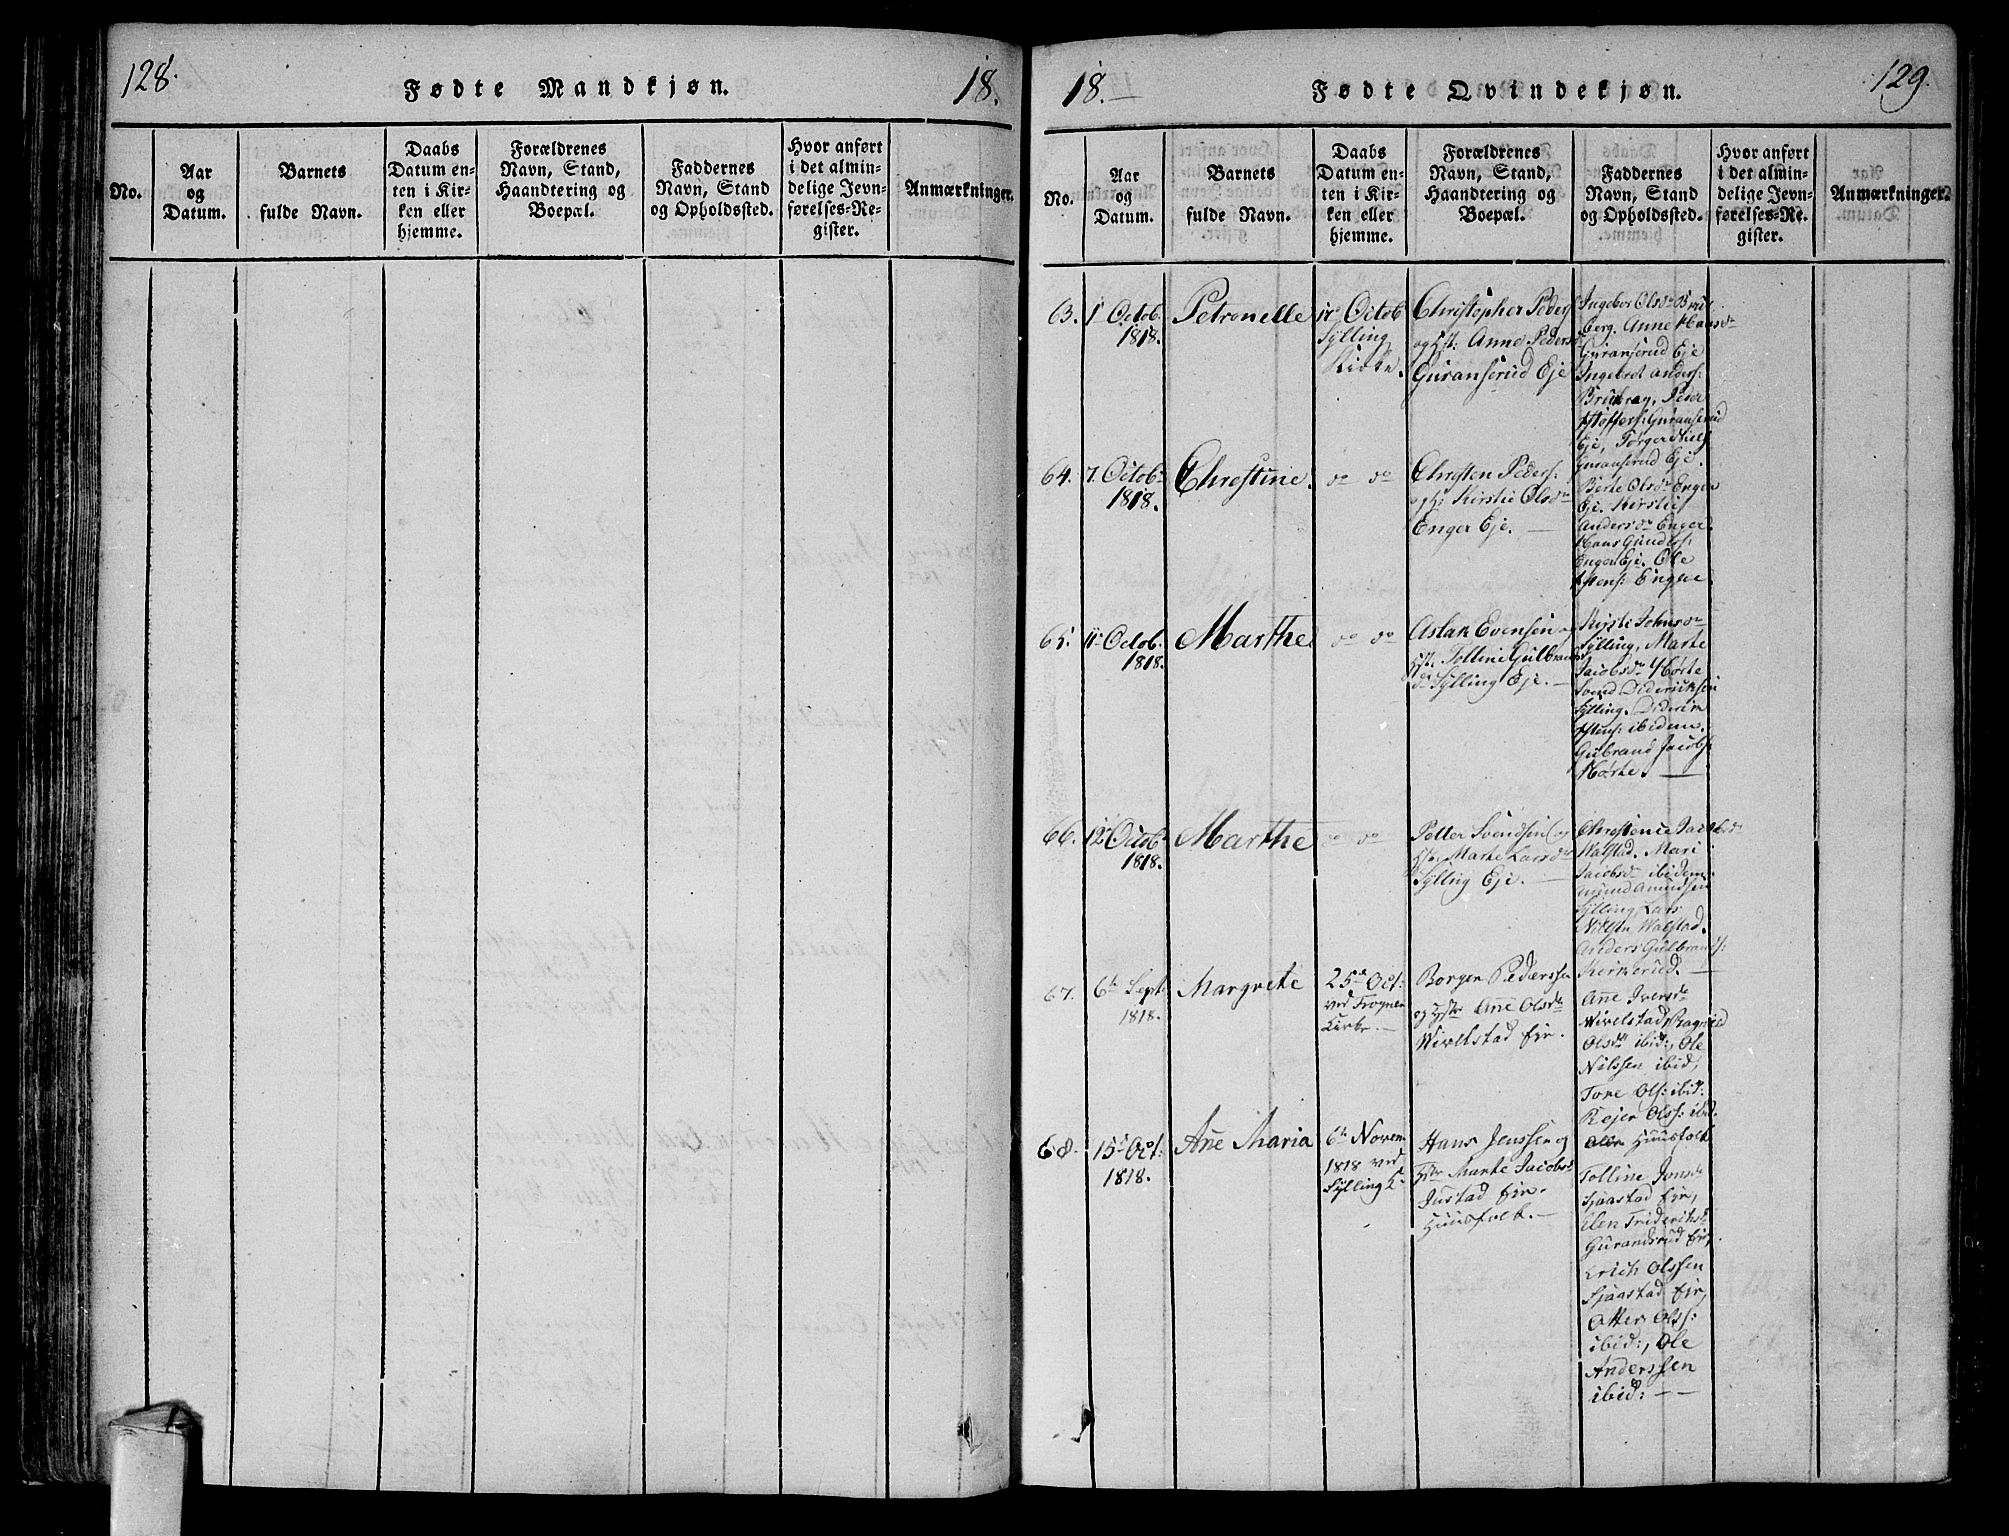 128.
Fødte Mandkjøn.
18.
No.
Aar
og
Datum.
Barnets
fulde Navn.
Daabs
Datum en-
ten i Kir-
ken eller
hjemme.
Forældrenes
Navn, Stand,
Haandtering og
Boepæl.
Faddernes
Navn, Stand
og Opholdssted.
Hvor anført
i det almin-
delige Jevn-
førelses-Re-
gister.
Anmærkninger.
18.
Fødte Qvindekjøn.
129.
No.
Aar
og
Datum.
Barnets
fulde Navn.
Daabs
Datum en-
ten i Kir-
ken eller
hjemme.
Forældrenes
Navn, Stand,
Haandtering og
Boepæl.
Faddernes
Navn, Stand
og Opholdssted.
Hvor anført
i det almin-
delige Jevn-
førelses-Re-
gister.
Anmærkninger.
63.
1 Octob.
1818.
Petronelle
Octob
Sylling
Kirke.
Christopher Peders
og Anne Peders
Guranserud Eje
Ingebor Olsdr
berg. Anne Hansdr
Guranserud Eje
Ingebret Anders:
Peder
Guranserud
Eje, Torger
Guranserud Eje.
64.
7. Octobr
1818.
Christine.
do do
Christen Peders:
Kirstie Olsdr
Enger Eje. —
Berte Olsdr Enger
Eje. Kirstie
Andersdr Enger.
Hans Gunders:
Enger Eje. Ole
Engene.
65.
11. Octob.
1818.
Marthe
do do
Aslak Evensen og
Tolline Gulbrands
dr Sylling Eje. —
Kirsti Johnsdr
Sylling, Marte
Jacobsdr Hørte
Svend Didericksen
Sylling.
ibidem.
Gulbrand Jacobs:
Hørte. —
66.
12 Octobr
1818.
Marthe
do do
Petter Svendsen og
Marte Larsdr
Sylling Eje. —
Christence Jacobsdr
Walstad. Mari
Jacobsdr ibidem.
Amundsen
Sylling, Lars
Nilsen Walstad.
Anders Gulbrands:
Kirkerud. —
67.
6te Sept:
1818.
Margrete
25de Oct:
ved Frogner
Kirke. —
Borger Pederssen
og Hstr Ane Olsdr
Wivelstad Eje.
Ane Iversdr
Wivelstad, Ragnild
Olsdr ibid:, Ole
Nilssen ibid,
Tore Ols: ibid:
Rejer Olss: ibid.
Huusfolk
68.
15de Oct:
1818.
Ane Maria
6te Novem
1818 ved
Sylling K
Hans Jenssen og
Hstr Marte Jacobsdr
Justad Eje.
Huusfolk. —
Tolline Jonsdr
Sjaastad Eje,
Elen Frideriksdr
Guranserud Eje,
Erich Olssen
Sjaastad Eje,
Otter Olss:
ibid:, Ole
Anderssen
ibid: — —